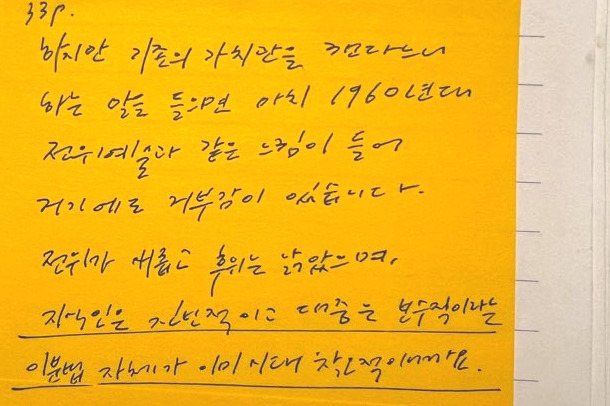 33p.
하지만 기존의 가치관을 깬다느니
하는 말을 들으면 마치 1960년대
전위예술과 같은 느낌이 들어
거기에도 거부감이 있습니다.
전위가 새롭고 후위는 낡았으며,
지식인은 진보적이고 대중은 보수적이라는
이분법 자체가 이미 시대 착오적이니까요.